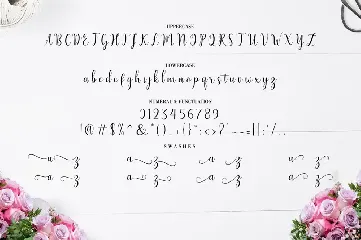 UPPERCASE
ABCDEFGHIJKLMNOPQRSTUVWXYZ
LOWERCASE
abcdefghijklmnopqrstuvwxyz
NUMERAL & PUNCTUATION
0123456789
SWASHES
a z a z a z a z
a z a z a z a z